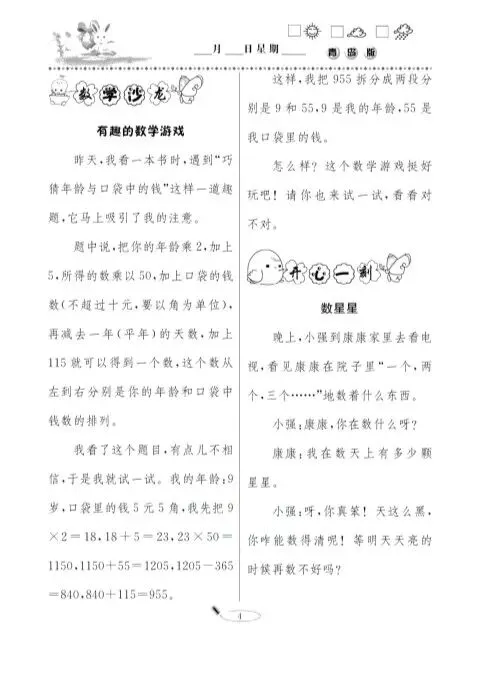 ____月____日星期____
青岛版
数学沙龙
有趣的数学游戏
昨天,我看一本书时,遇到“巧
猜年龄与口袋中的钱”这样一道趣
题,它马上吸引了我的注意。
题中说,把你的年龄乘2,加上
5,所得的数乘以50,加上口袋的钱
数(不超过十元,要以角为单位),
再减去一年(平年)的天数,加上
115就可以得到一个数,这个数从
左到右分别是你的年龄和口袋中
钱数的排列。
我看了这个题目,有点儿不相
信,于是我就试一试。我的年龄:9
岁,口袋里的钱5元5角,我先把9
×2=18,18+5=23,23×50=
1150,1150+55=1205,1205-365
=840,840+115=955。
这样,我把955拆分成两段分
别是9和55,9是我的年龄,55是
我口袋里的钱。
怎么样?这个数学游戏挺好
玩吧!请你也来试一试,看看对
不对。
开心一刻
数星星
晚上,小强到康康家里去看电
视,看见康康在院子里“一个,两
个,三个……”地数着什么东西。
小强:康康,你在数什么呀?
康康:我在数天上有多少颗
星星。
小强:呀,你真笨!天这么黑,
你咋能数得清呢!等明天天亮的
时候再数不好吗?
4